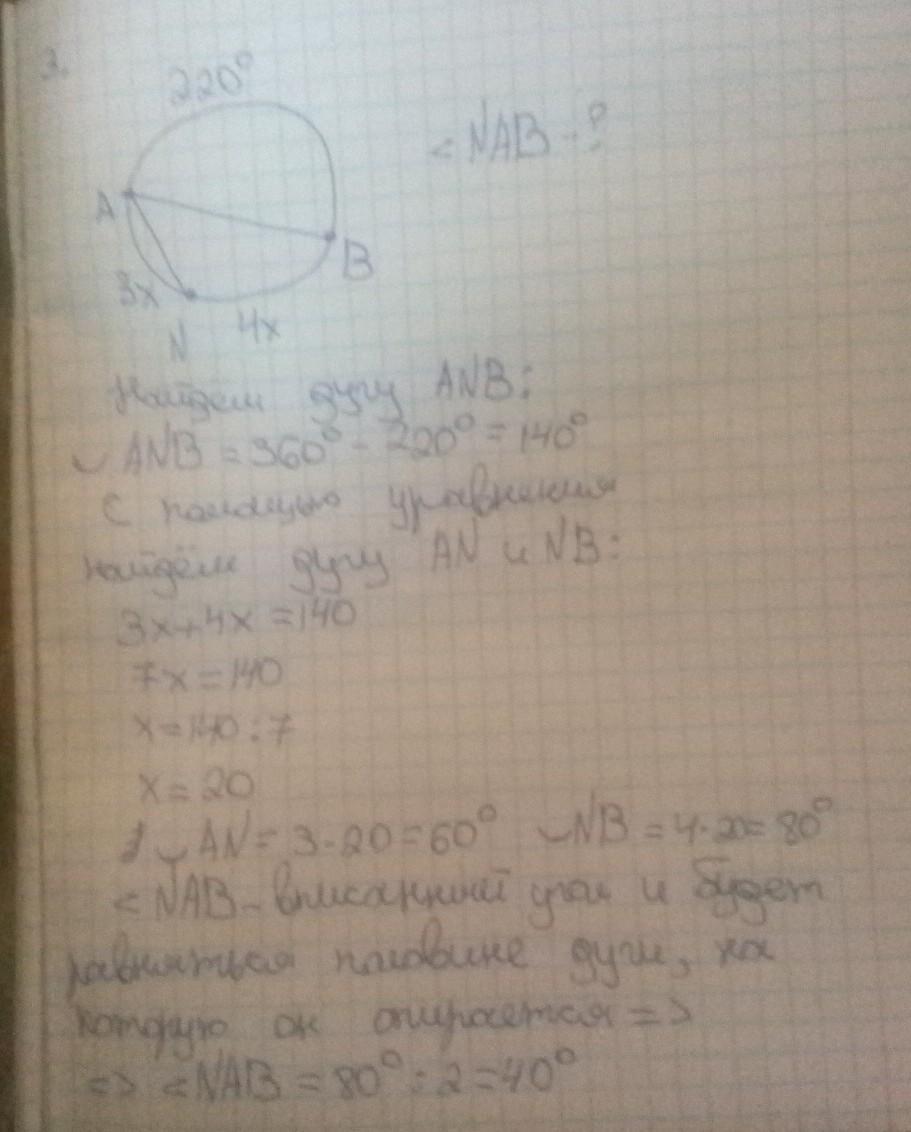 3.
220°
< NAB - ?
A
B
3x
N
4x
Найдем дугу ANB:
◡ ANB = 360° - 220° = 140°
С помощью уравнения
найдём дугу AN и NB:
3x+4x=140
7x=140
x=140:7
x=20
◡ AN = 3·20=60° ◡NB = 4·20= 80°
< NAB - вписанный угол и будет
равняться половине дуги, на
которую он опирается =>
=> < NAB = 80° : 2 = 40°